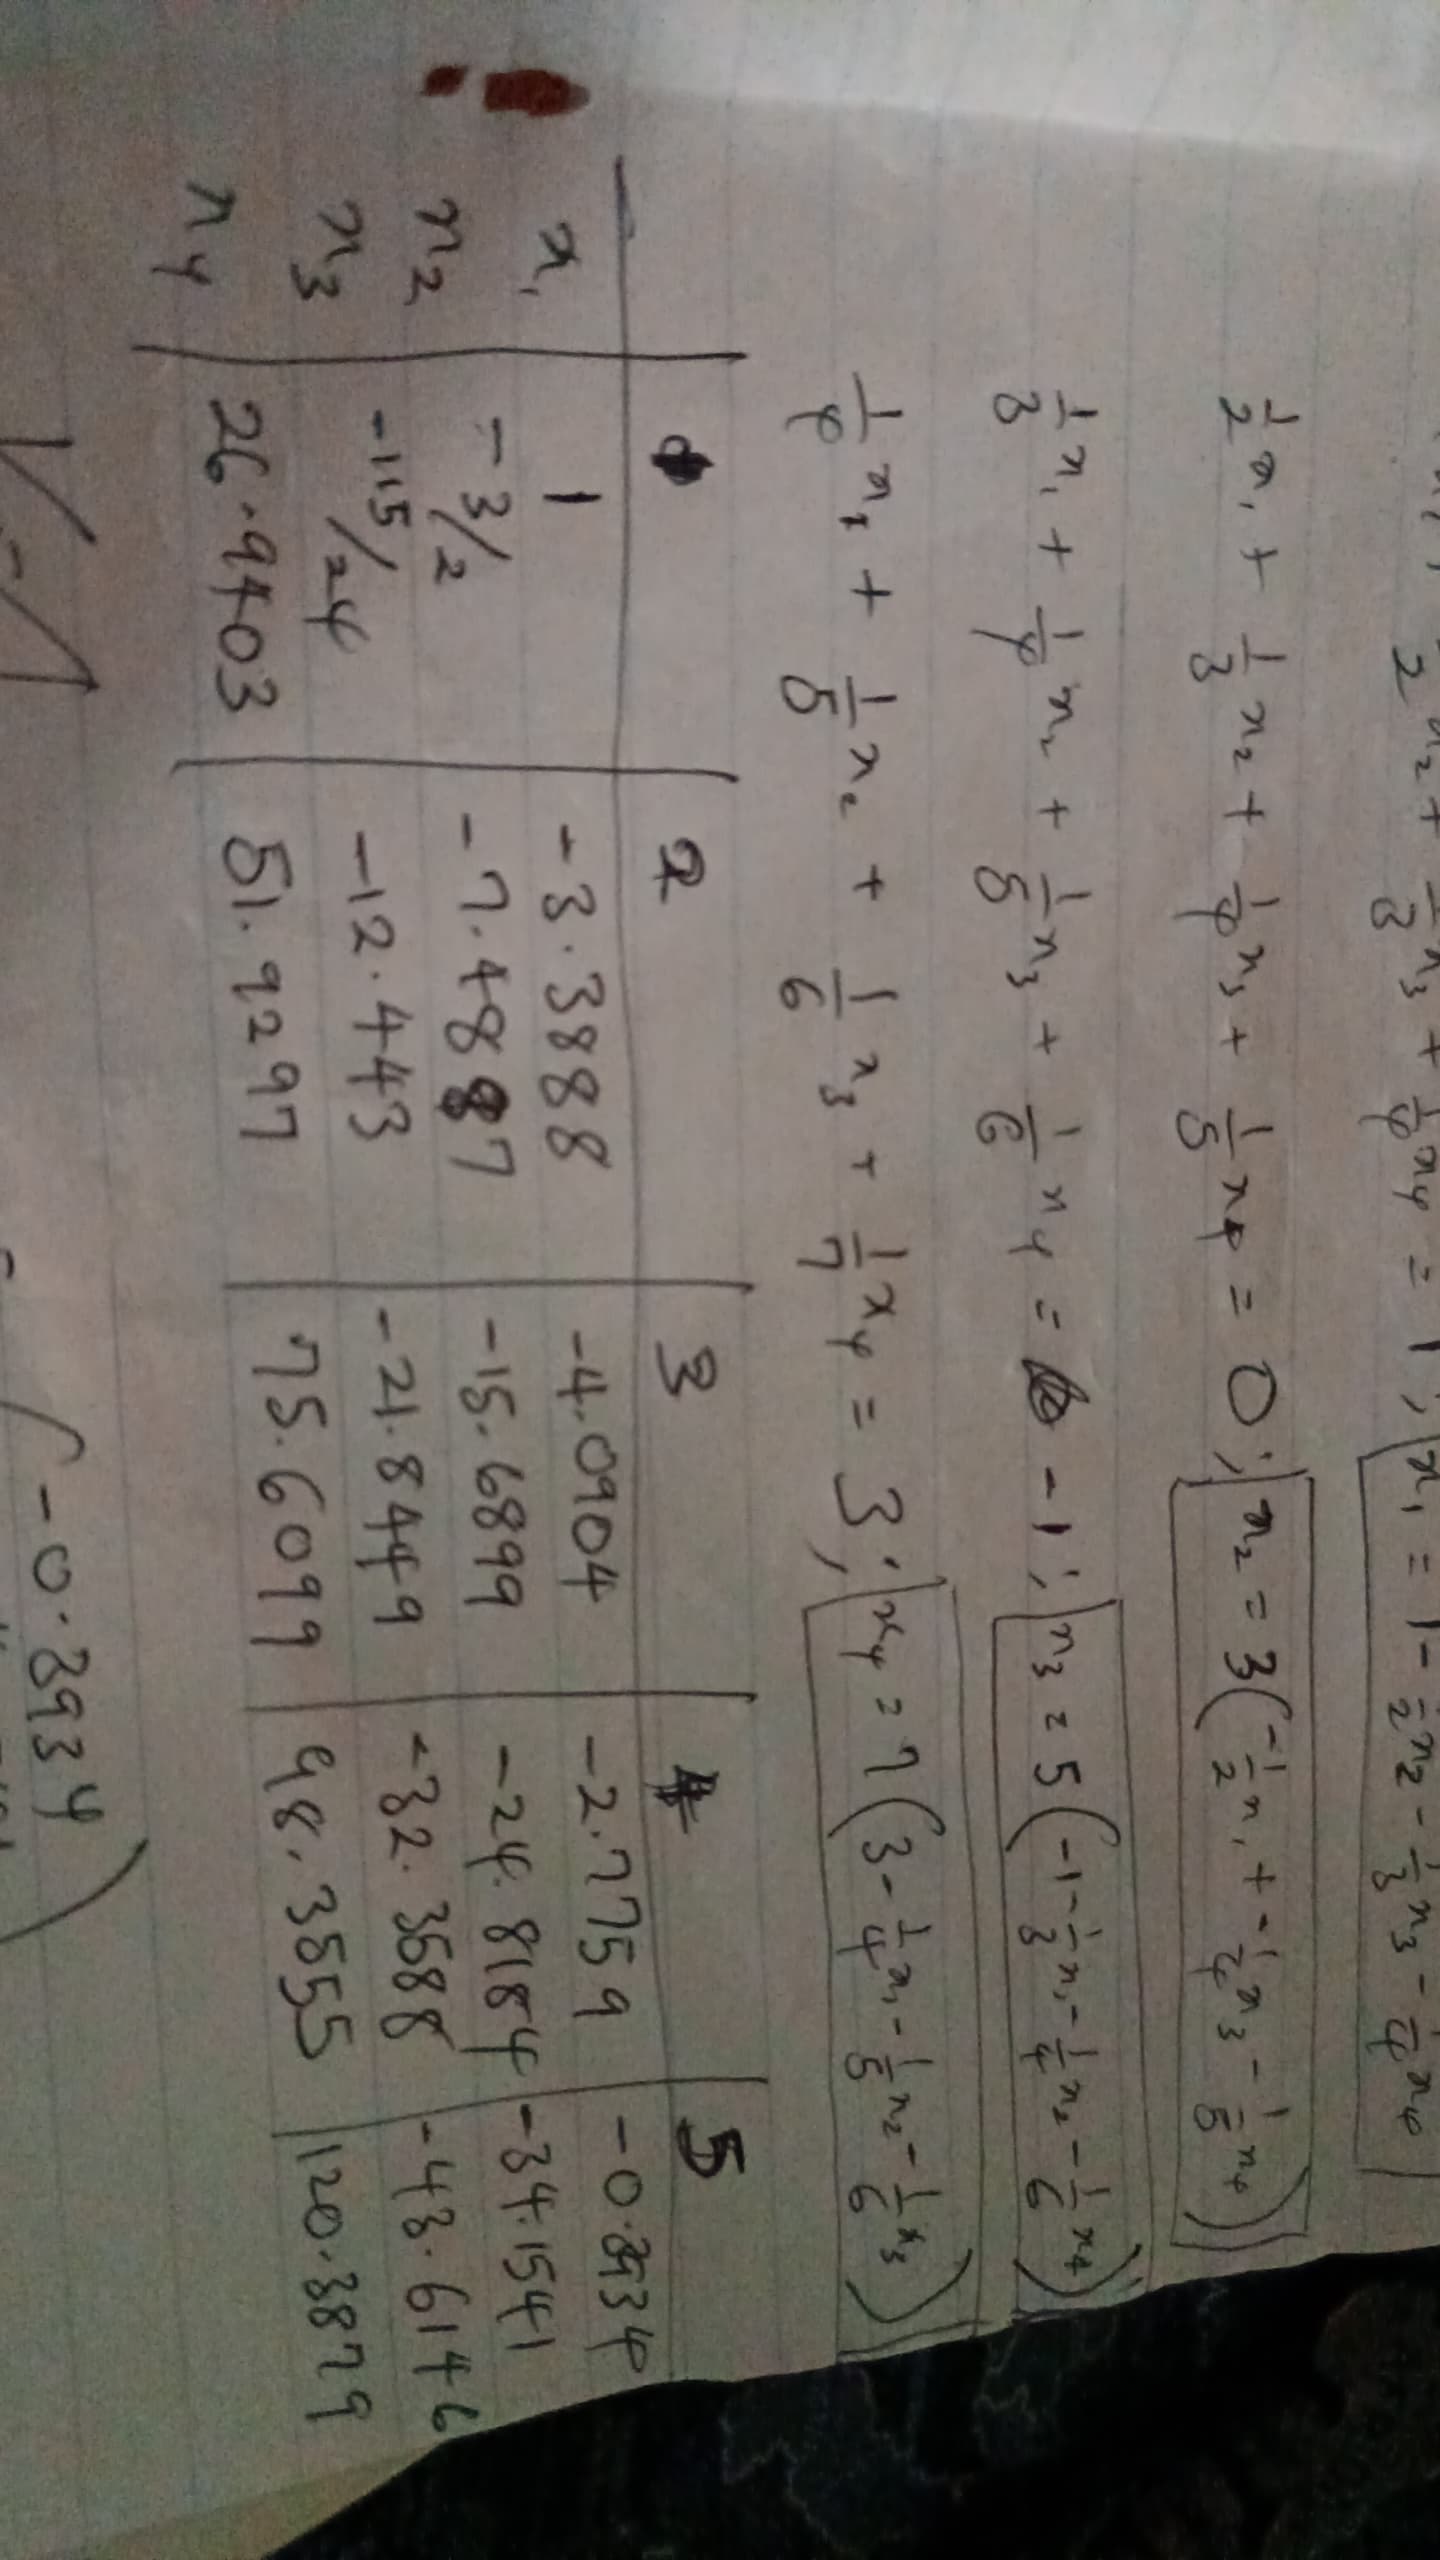 x₁ + 1/2 x₂ + 1/3 x₃ + 1/4 x₄ = 1 ; x₁ = 1 - 1/2 x₂ - 1/3 x₃ - 1/4 x₄
1/2 x₁ + 1/3 x₂ + 1/4 x₃ + 1/5 x₄ = 0 ; x₂ = 3(-1/2 x₁ + -1/4 x₃ - 1/5 x₄)
1/3 x₁ + 1/4 x₂ + 1/5 x₃ + 1/6 x₄ = -1 ; x₃ = 5(-1 - 1/3 x₁ - 1/4 x₂ - 1/6 x₄)
1/4 x₁ + 1/5 x₂ + 1/6 x₃ + 1/7 x₄ = 3 ; x₄ = 7(3 - 1/4 x₁ - 1/5 x₂ - 1/6 x₃)
1 2 3 4 5
x₁ 1 -3.3888 -4.0904 -2.7759 -0.3934
x₂ -3/2 -7.4887 -15.6899 -24.8184 -34.1541
x₃ -115/24 -12.443 -21.8449 -32.3588 -43.6146
x₄ 26.9403 51.9297 75.6099 98.3555 120.3879
-0.3934